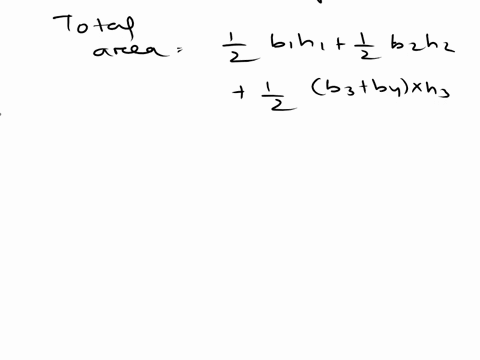 Total
area = 1/2 b1h1 + 1/2 b2h2
+ 1/2 (b3+b4)×h3